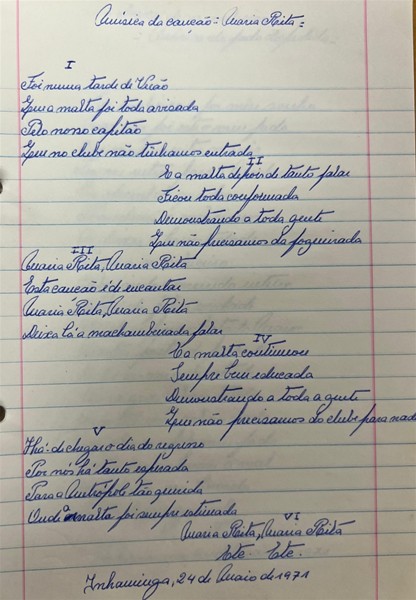 Música da canção = Maria Rita =
I
Foi numa tarde de Verão
Que a malta foi toda avisada
Pelo nosso capitão
Que no clube não tinhamos entrada
II
E a malta depois de tanto falar
Ficou toda conformada
Demonstrando a toda gente
Que não precisamos da fogueirada
III
Maria Rita, Maria Rita
Esta canção é de encantar
Maria Rita, Maria Rita
Deixa lá a machambeirada falar
IV
E a malta continuou
Sempre bem educada
Demonstrando a toda a gente
Que não precisamos do clube para nada
V
Há-de chegar o dia do regresso
Por nós há tanto esperada
Para a Metrópole tão querida
Onde a malta foi sempre estimada
VI
Maria Rita, Maria Rita
Etc. Etc.
Inhaminga, 24 de Maio de 1971